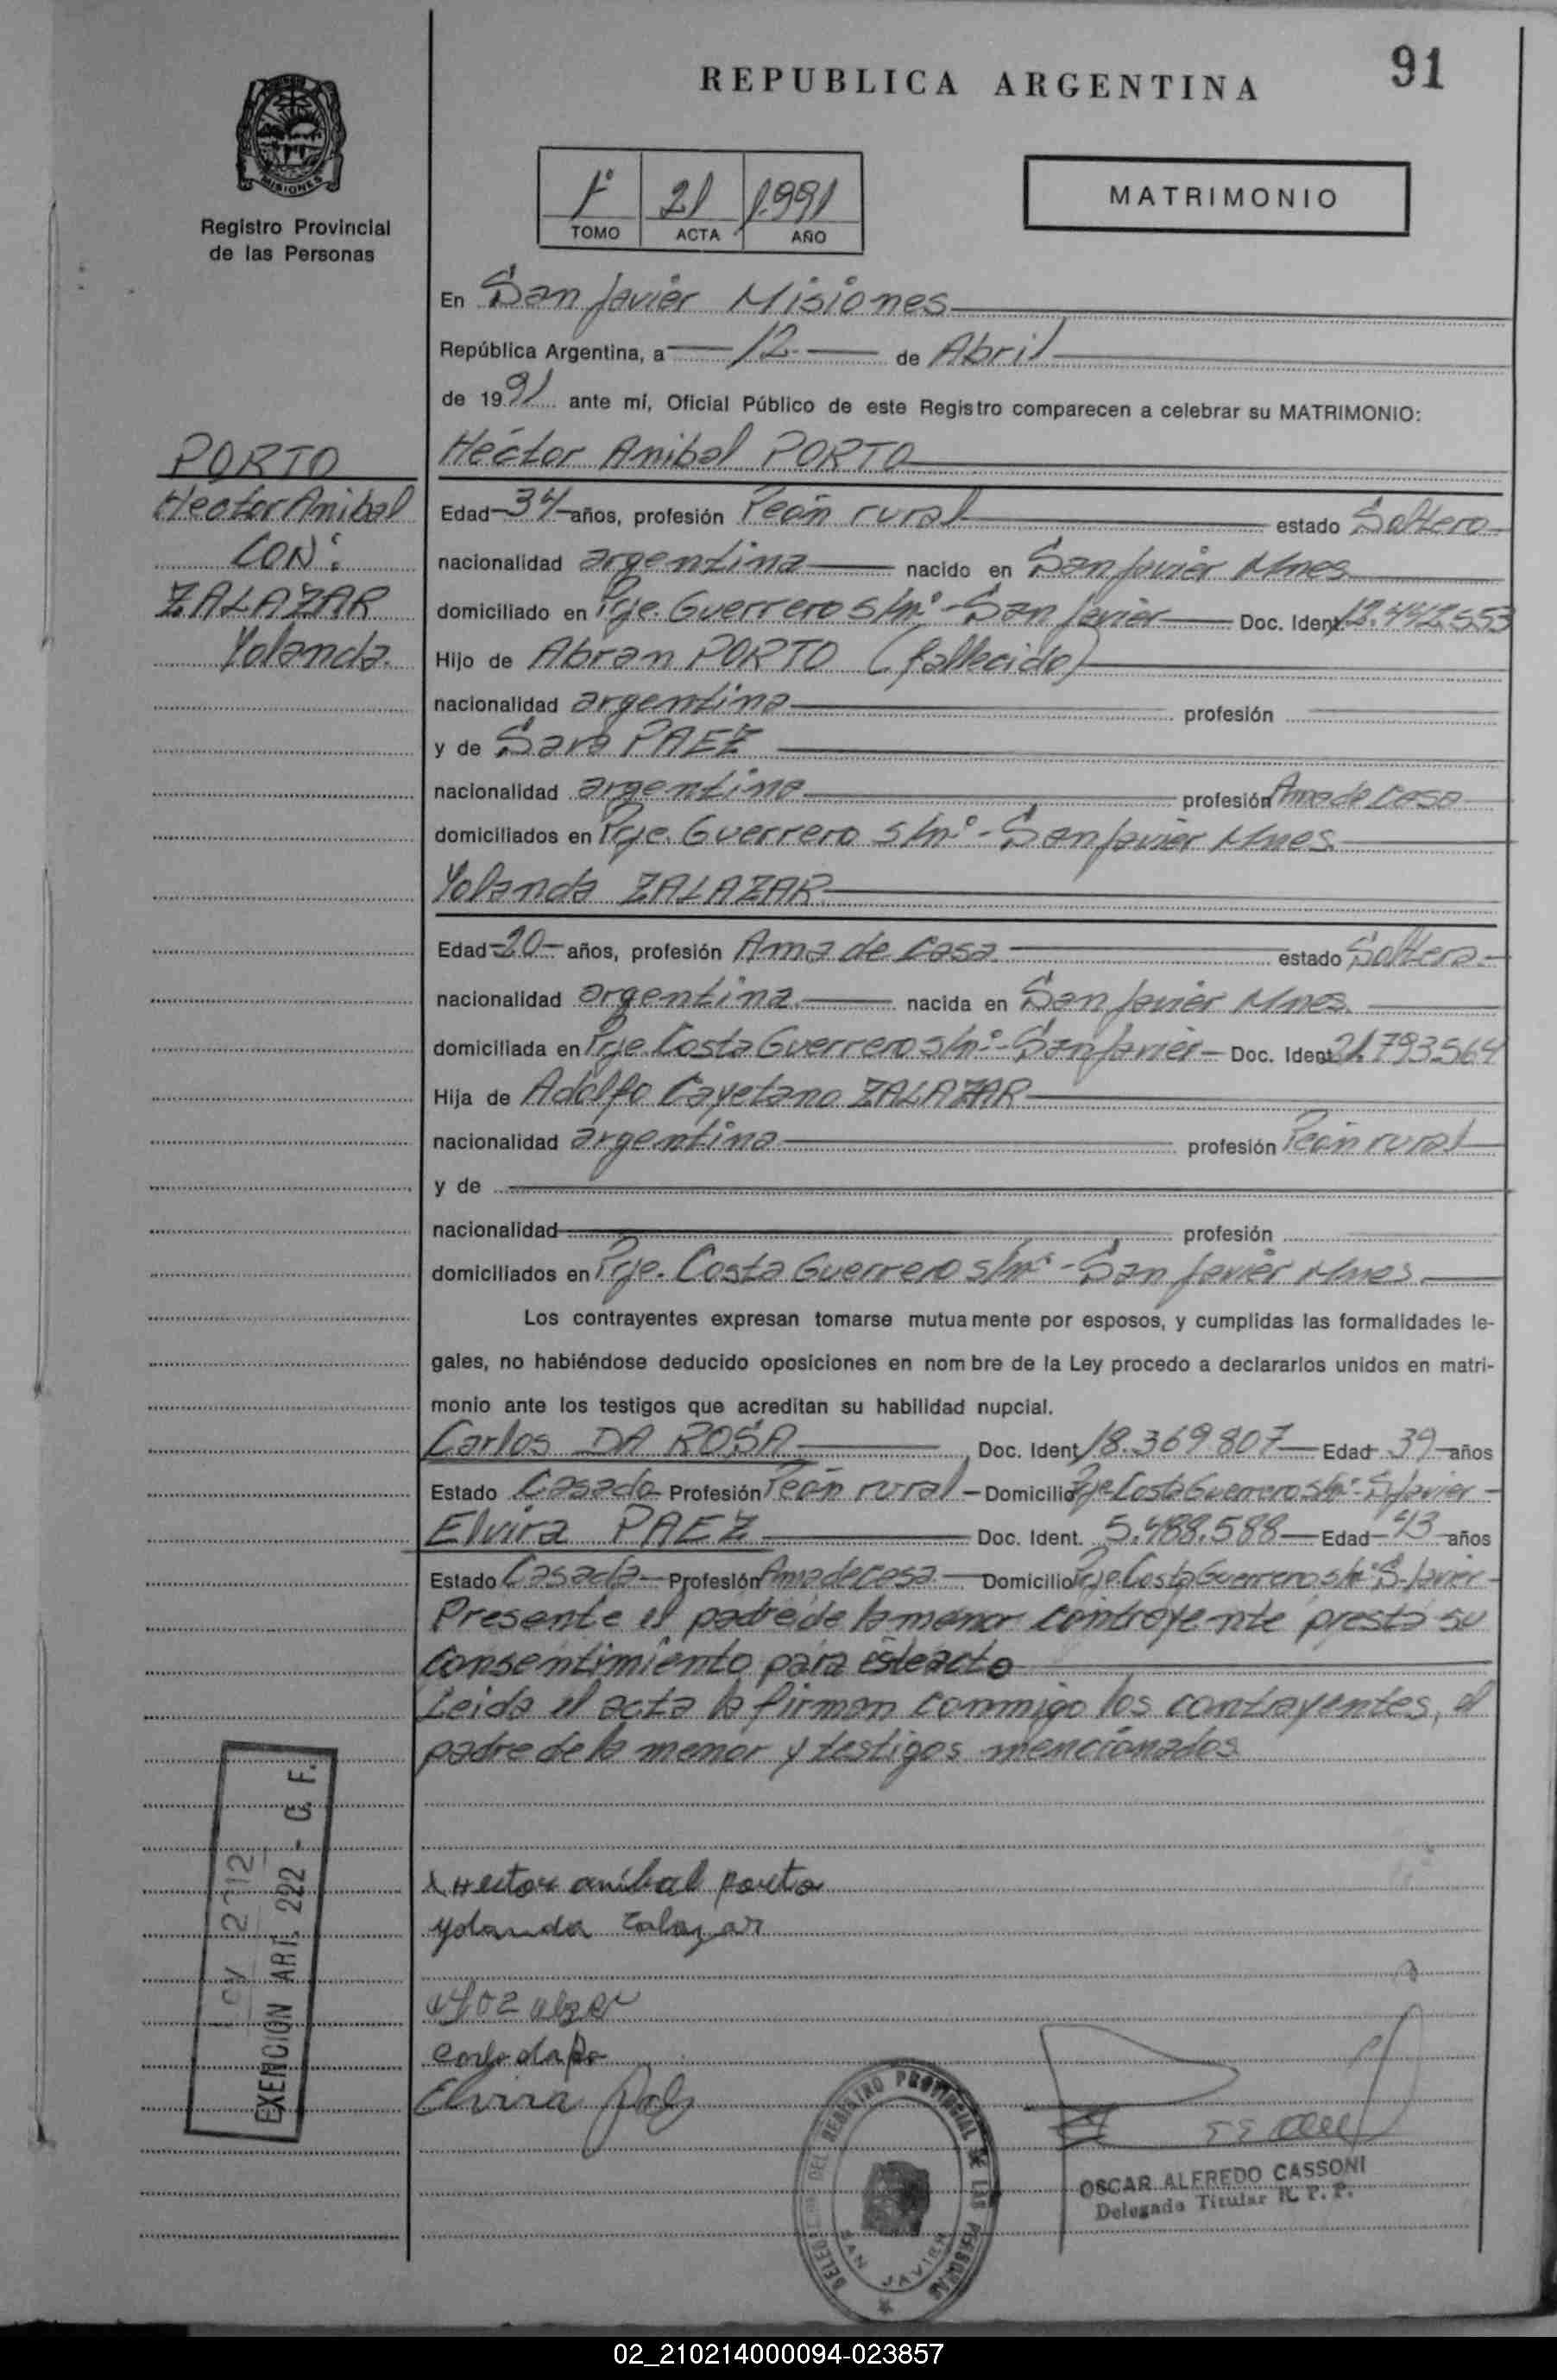 91
REPUBLICA ARGENTINA
MISIONES
Registro Provincial
de las Personas
1º 21 1991
TOMO ACTA AÑO
MATRIMONIO
En San Javier Misiones
República Argentina, a 12 de Abril
de 1991 ante mí, Oficial Público de este Registro comparecen a celebrar su MATRIMONIO:
PORTO
Hector Anibal
CON:
ZALAZAR
Yolanda.
Héctor Anibal PORTO
Edad 34 años, profesión Peón rural estado Soltero
nacionalidad argentina nacido en San Javier Mnes
domiciliado en Pje. Guerrero s/nº - San Javier Doc. Ident. 12.442.553
Hijo de Abran PORTO (fallecido)
nacionalidad argentina profesión
y de Sara PAEZ
nacionalidad argentina profesión Ama de casa
domiciliados en Pje. Guerrero s/nº - San Javier Mnes.
Yolanda ZALAZAR
Edad 20 años, profesión Ama de casa estado Soltera.
nacionalidad argentina nacida en San Javier Mnes.
domiciliada en Pje. Costa Guerrero s/nº - San Javier - Doc. Ident. 21.793.564
Hija de Adolfo Cayetano ZALAZAR
nacionalidad argentina profesión Peón rural
y de
nacionalidad profesión
domiciliados en Pje. Costa Guerrero s/nº - San Javier Mnes.
Los contrayentes expresan tomarse mutuamente por esposos, y cumplidas las formalidades le-
gales, no habiéndose deducido oposiciones en nombre de la Ley procedo a declararlos unidos en matri-
monio ante los testigos que acreditan su habilidad nupcial.
Carlos DA ROSA Doc. Ident. 18.369.807 Edad 39 años
Estado Casado Profesión Peón rural - Domicilio Pje Costa Guerrero s/nº - S. Javier -
Elvira PAEZ Doc. Ident. 5.488.588 Edad 43 años
Estado Casada Profesión Ama de casa. Domicilio Pje. Costa Guerrero s/nº S. Javier -
Presente el padre de la menor contrayente presta su
consentimiento para este acto
Leida el acta la firman conmigo los contrayentes, el
padre de la menor y testigos mencionados
EXENCIÓN ART. 222 - C. F.
Hector anibal porto
yolanda zalazar
Elvira
DEL REGISTRO PROVINCIAL DE LAS PERSONAS
SAN JAVIER
OSCAR ALFREDO CASSONI
Delegado Titular R. P. P.
02_210214000094-023857